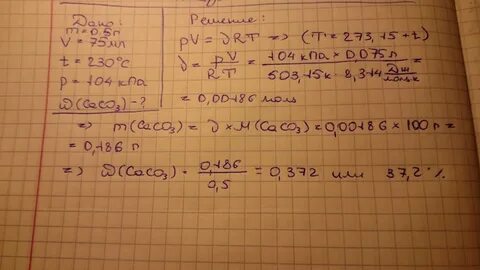 Дано:
m = 0,5г
V = 75мл
t = 230°C
p = 104 кПа
ω(CaCO₃) - ?
Решение:
pV = νRT => (T = 273,15 + t)
ν = pV / RT = 104 кПа × 0,075л / 503,15к · 8,314 Дж/моль·к =
= 0,00186 моль
=> m(CaCO₃) = ν × M(CaCO₃) = 0,00186 × 100г =
= 0,186 г
=> ω(CaCO₃) = 0,186 / 0,5 = 0,372 или 37,2 %.